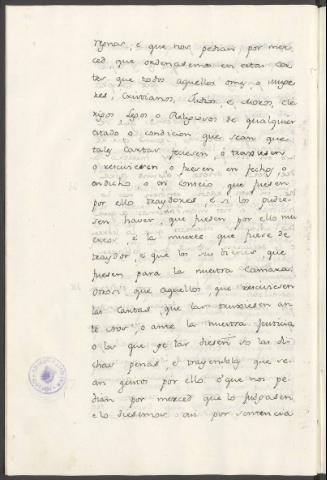 regnar, e que nos pedian por mer
ced, que ordenasemos en estas cor
tes que todos aquellos omes, o muxe
res, Cristianos, Judios, e Moros, cle
rigos, Legos o Religiosos de qualquier
estado o condicion que sean que
tales Cartas ficiesen, o traxiesen,
o reciviesen o fuesen en fecho, o
en dicho, o en consejo que fuesen
por ello traydores, e si los pudie
sen haver, que fuesen por ello mu
ertos, e la muerte que fuere de
traydor, e que los sus bienes, que
fuesen para la nuestra Camara.
Otrosi que aquellos, que reciviesen
las Cartas, que las truxiesen an
te Nos, o ante la nuestra Justicia
o las que se las diesen so las di
chas penas, e trayendolas que se
an quitos por ello, o que nos pe
dian por merced que lo juzgasen
e lo diesemos asi por sentencia